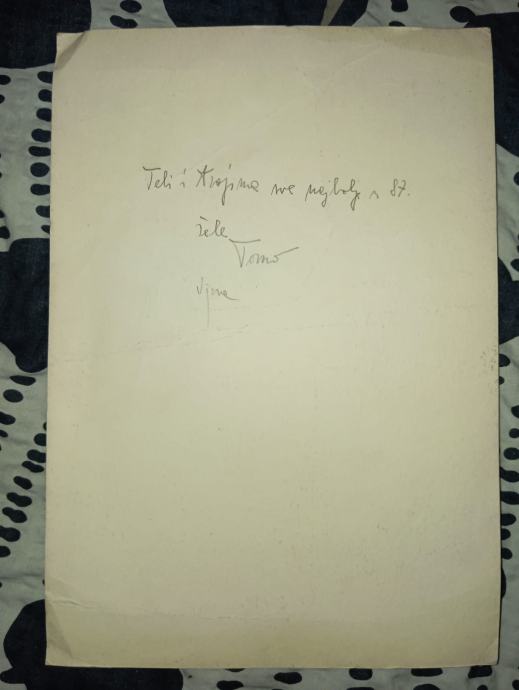 Teli i Krojima sve najbolje u 87.
žele
Tomo
Vjera